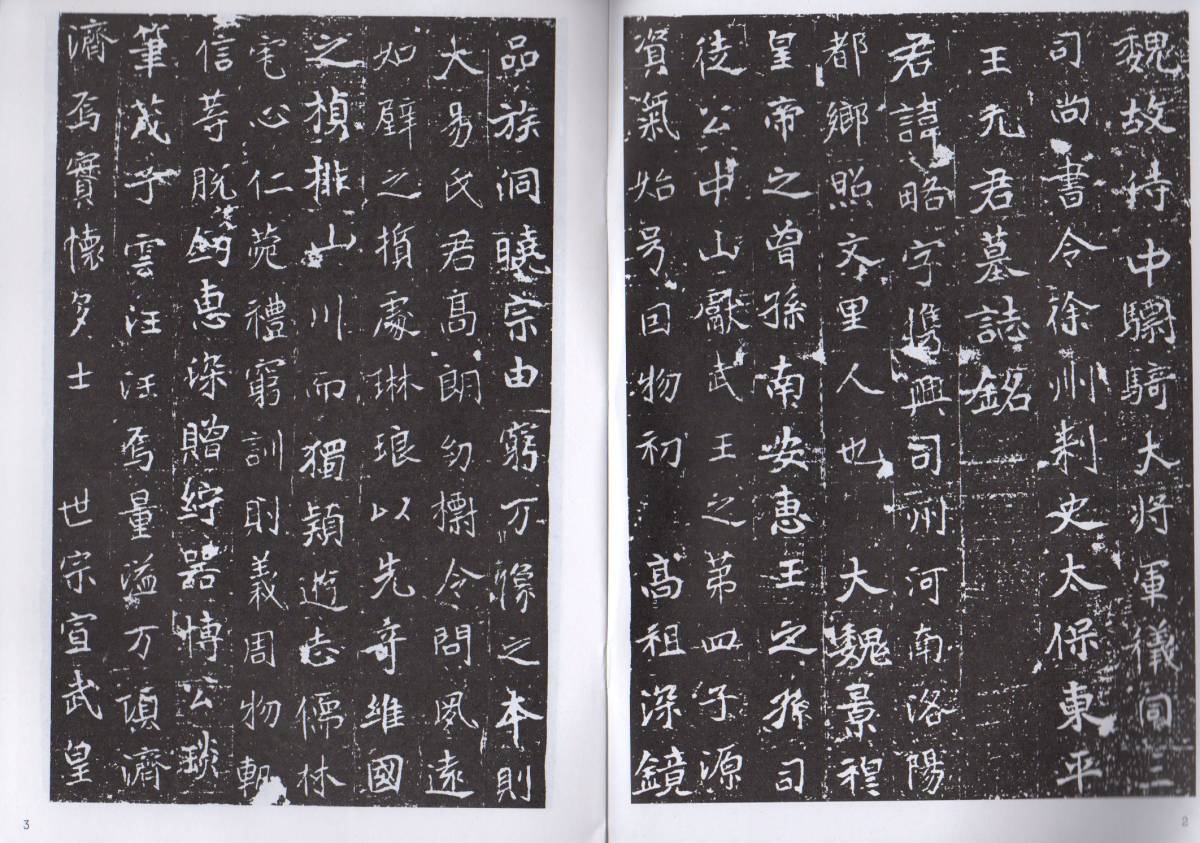 魏故侍中驃騎大将軍儀同三
司尚書令徐州刺史太保東平
王元君墓誌銘
君諱略字儁興司州河南洛陽
都鄉照文里人也大魏景穆
皇帝之曾孫南安惠王之孫司
徒公中山獻武王之第四子源
資氣始号因物初高祖深鏡
2
品族洞曉宗由窮万緣之本則
大易氏君高朗幼橚令問夙遠
如璧之損處琳琅以先奇維國
之楨排山川而獨穎遊志儒林
宅心仁菀禮窮訓則義周物軌
信等脫劒惠深贈紵器博公琰
筆茂子雲汪汪焉量溢万頃濟
濟焉實懷多士世宗宣武皇
3